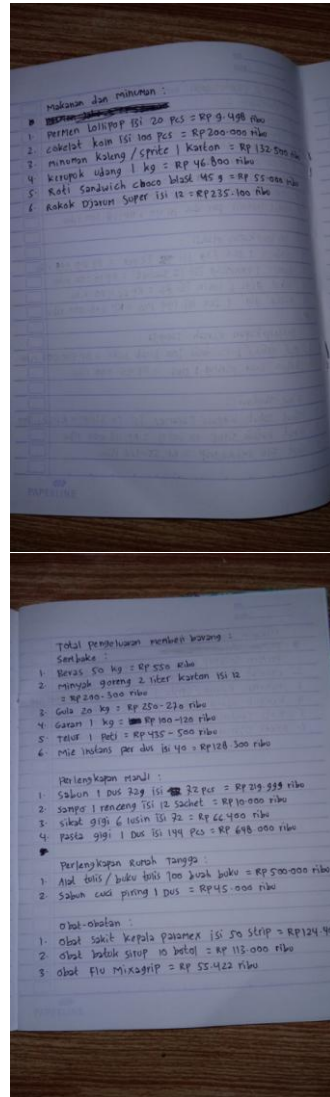 Makanan dan minuman :
1. Permen Lollipop isi 20 pcs = Rp 9.498 ribu
2. cokelat koin isi 100 pcs = Rp 200.000 ribu
3. minuman kaleng / sprite 1 karton = Rp 132.500
4. kerupuk udang 1 kg = Rp 46.800 ribu
5. Roti sandwich choco blast 45 g = Rp 55.000 ribu
6. Rokok Djarum Super isi 12 = Rp 235.100 ribu
PAPERLINE
Total pengeluaran membeli barang :
Sembako :
1. Beras 50 kg = Rp 550 ribu
2. Minyak goreng 2 liter karton isi 12
= Rp 200-300 ribu
3. Gula 20 kg = Rp 250-270 ribu
4. Garam 1 kg = Rp 100-120 ribu
5. Telur 1 Peti = Rp 435 - 500 ribu
6. Mie instans per dus isi 40 = Rp 128.300 ribu
Perlengkapan Mandi :
1. Sabun 1 Dus 72g isi 72 pcs = Rp 219.999 ribu
2. Sampo 1 renceng isi 12 sachet = Rp 10.000 ribu
3. sikat gigi 6 lusin isi 72 = Rp 66.400 ribu
4. pasta gigi 1 Dus isi 144 pcs = Rp 648.000 ribu
Perlengkapan Rumah Tangga :
1. Alat tulis / buku tulis 100 buah buku = Rp 500.000 ribu
2. Sabun cuci piring 1 Dus = Rp 45.000 ribu
obat-obatan :
1. obat sakit kepala paramex isi 50 strip = Rp 124.4
2. obat batuk sirup 10 botol = Rp 113.000 ribu
3. obat Flu Mixagrip = Rp 55.422 ribu